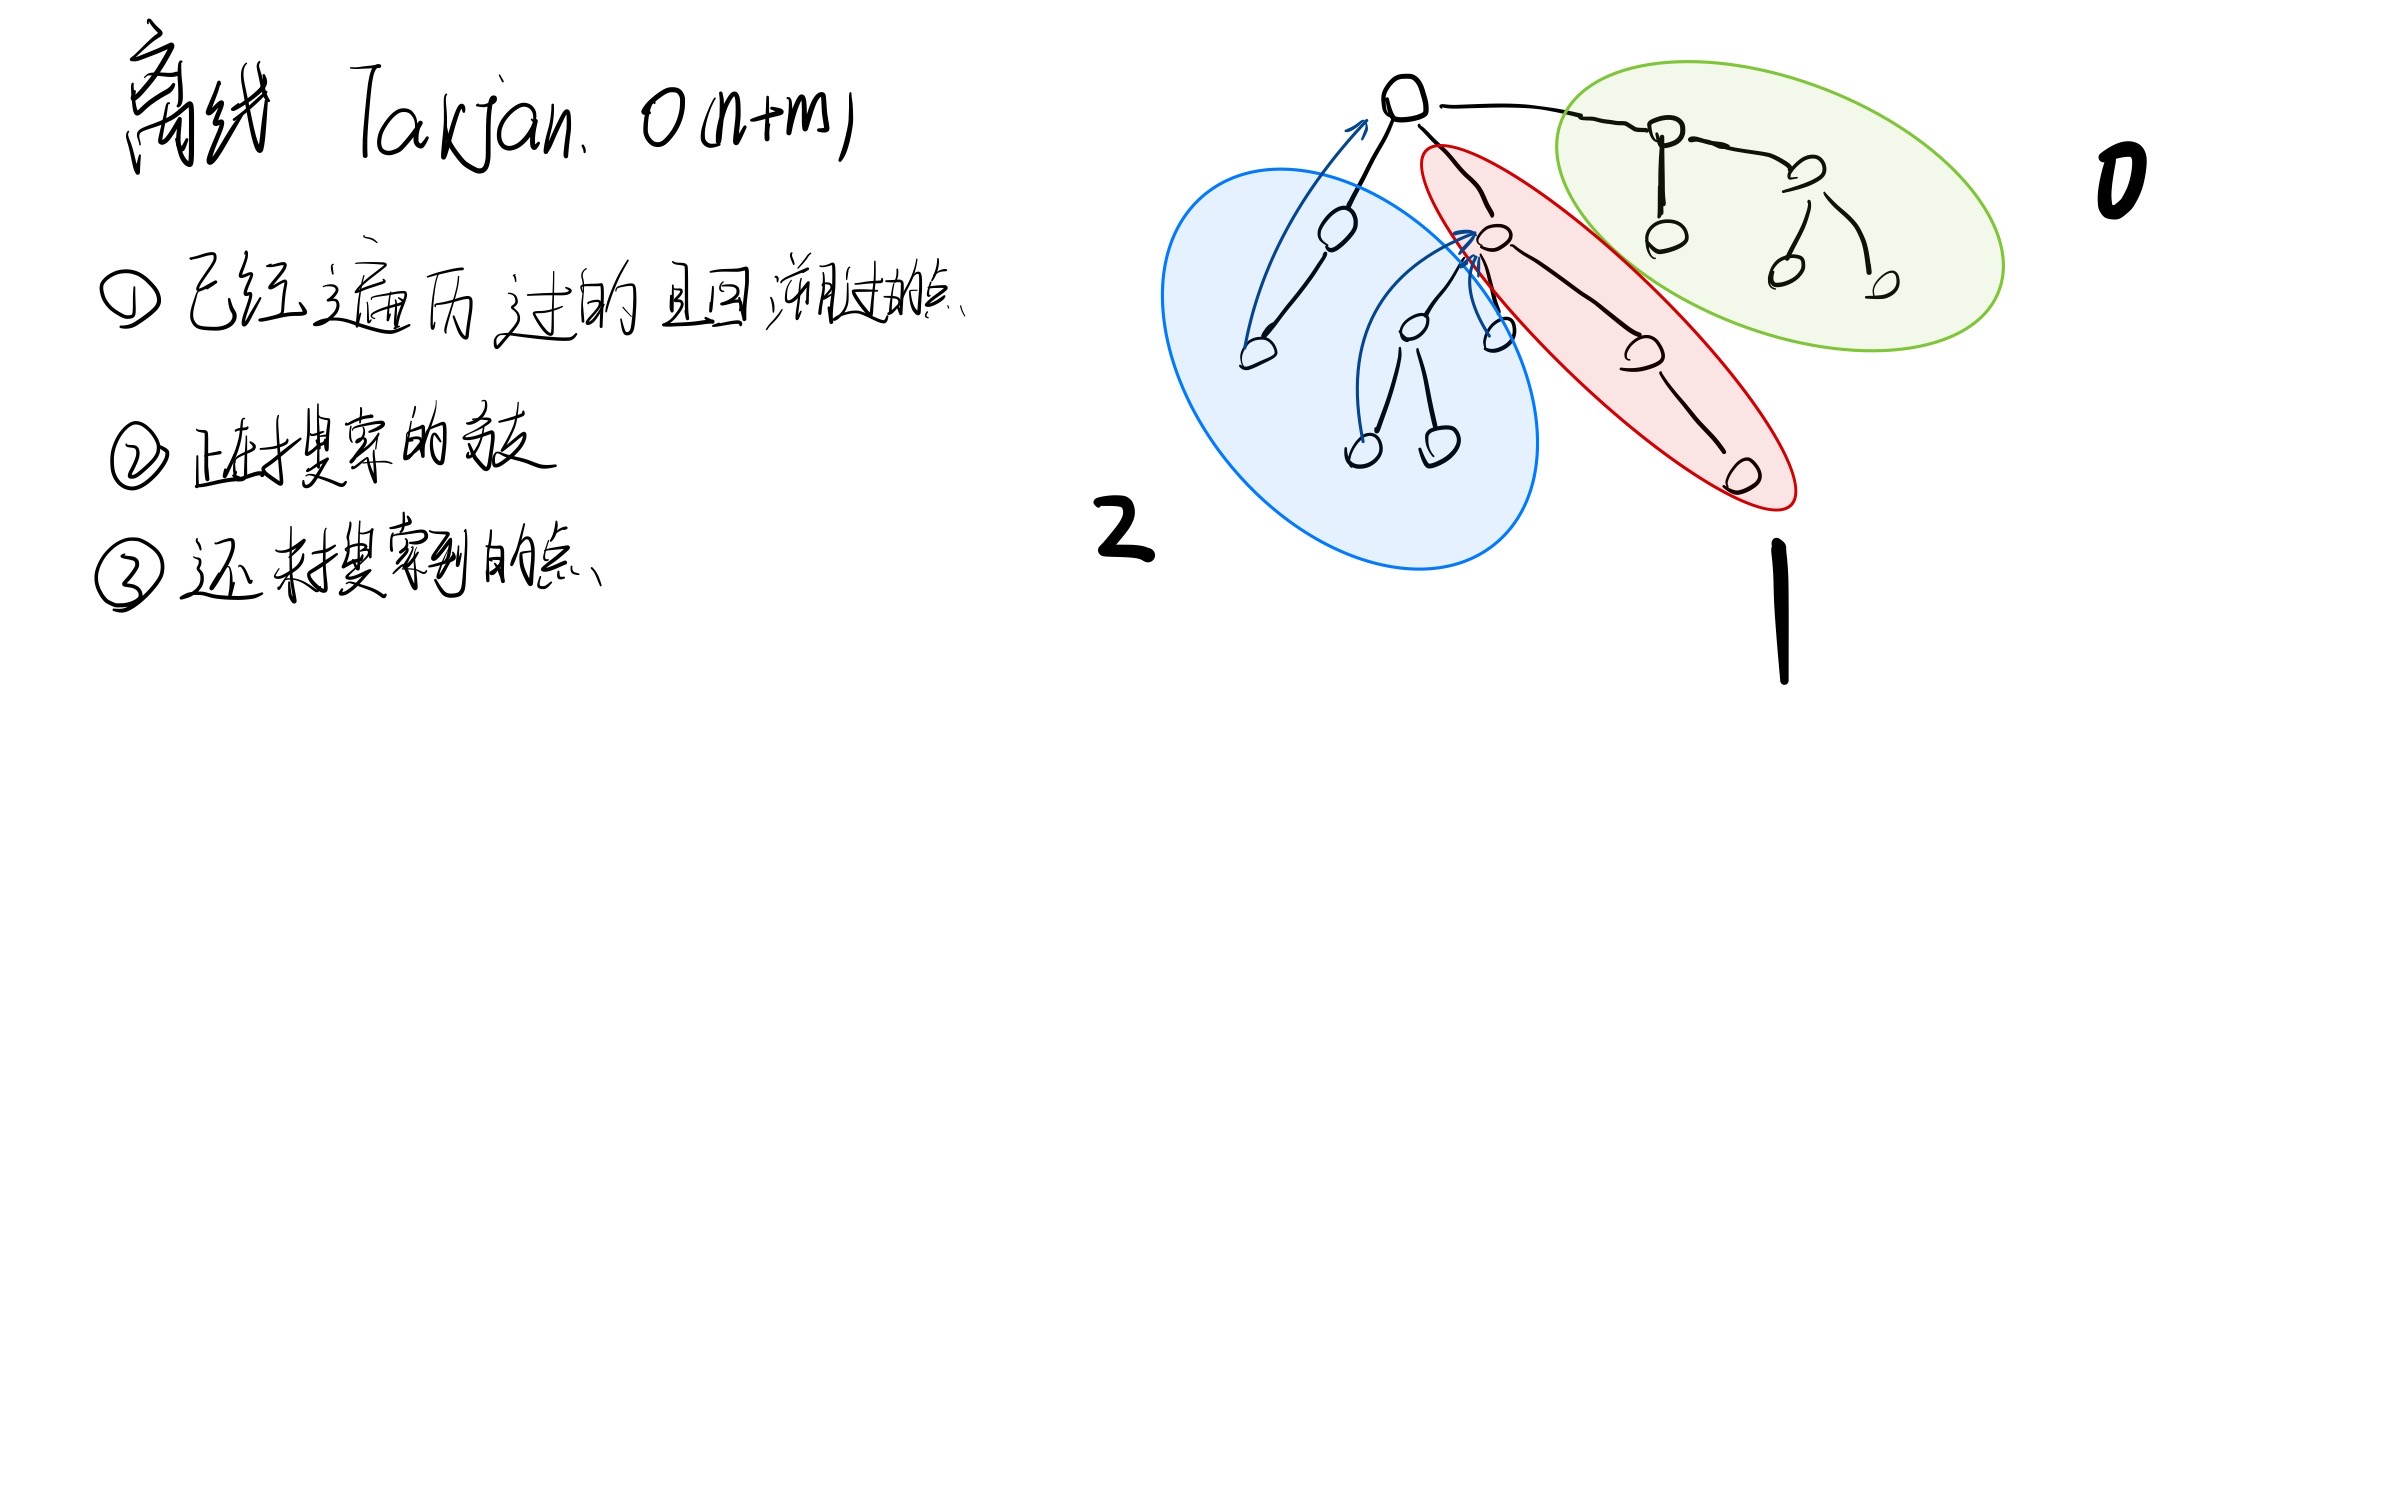 离线 Tarjan. O(n+m)
① 已经遍历过的且回溯过的点.
② 正在搜索的分支
③ 还未搜索到的点.
0
2
1